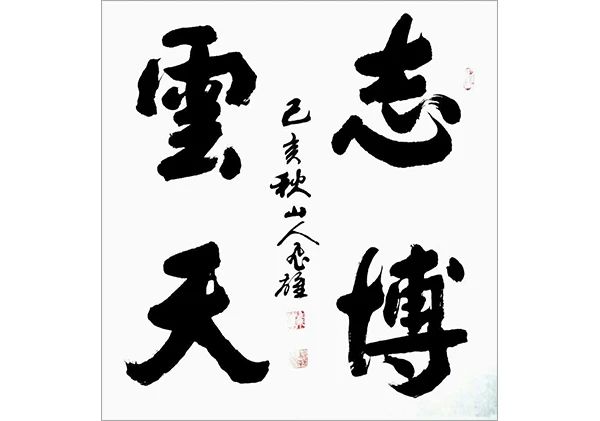 志博
雲天
己亥秋山人飛雄